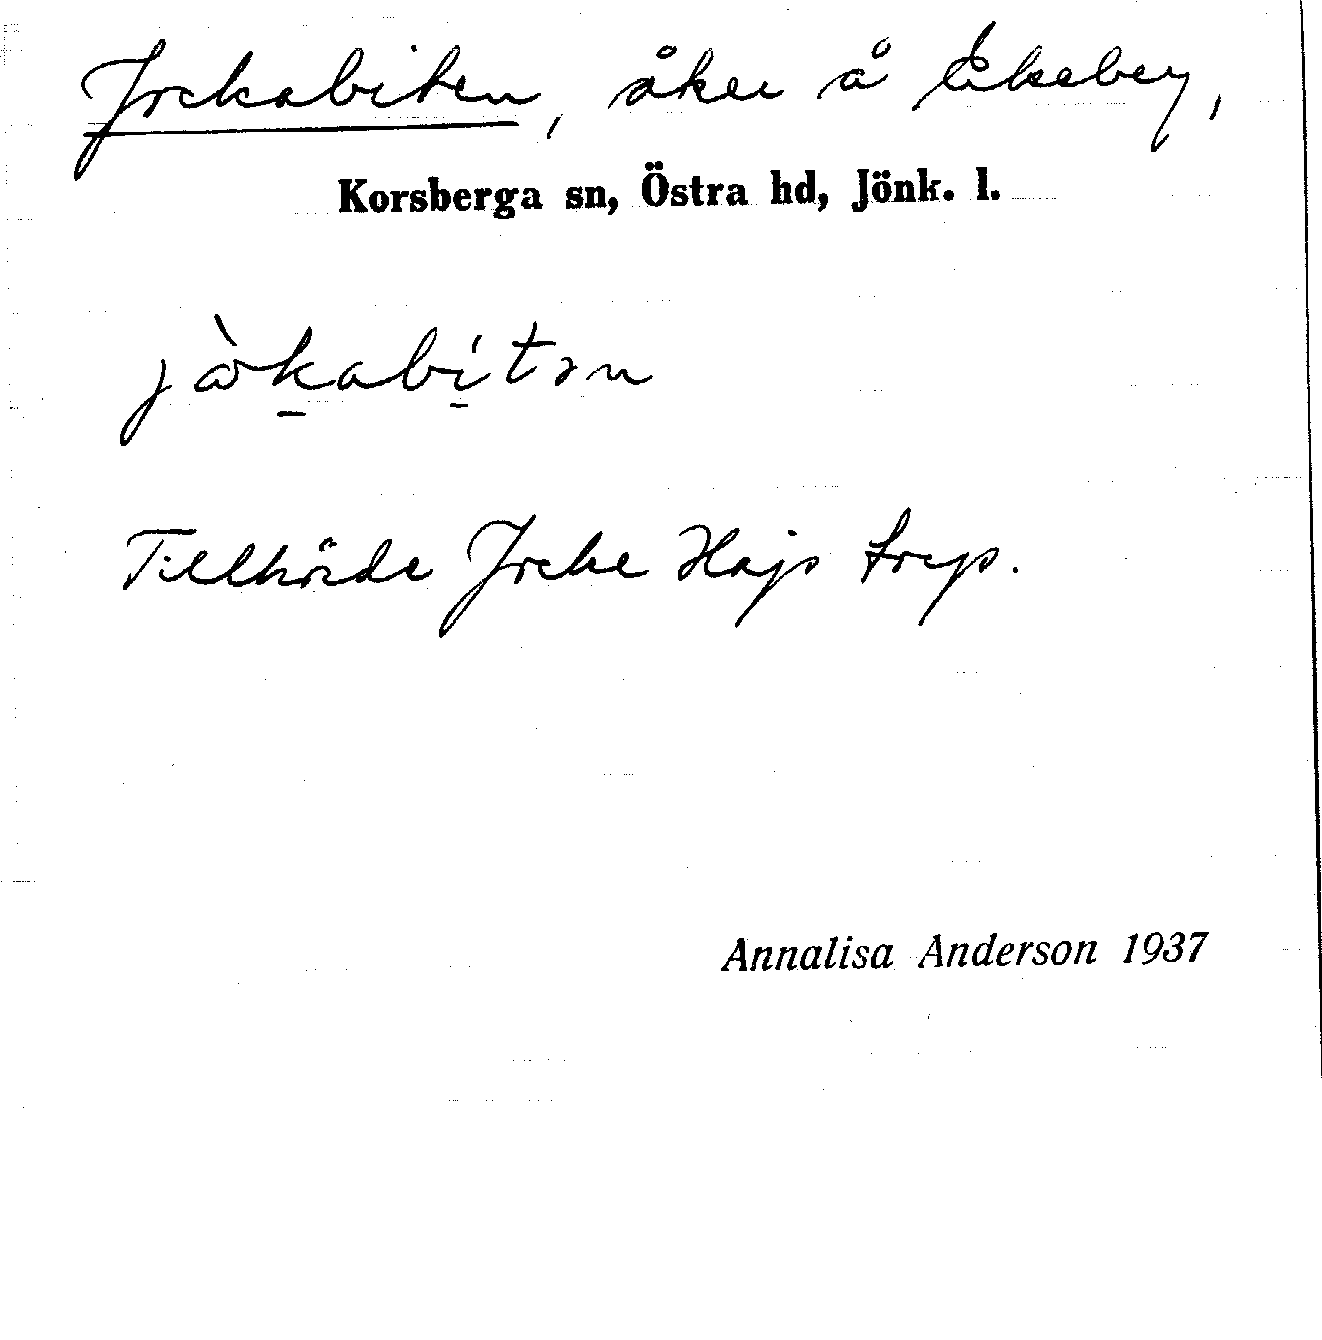 Jockabiten, åker å Ekeberg,
Korsberga sn, Östra hd, Jönk. l.
jòkabítən
Tillhörde Jocke Hajs torp.
Annalisa Anderson 1937